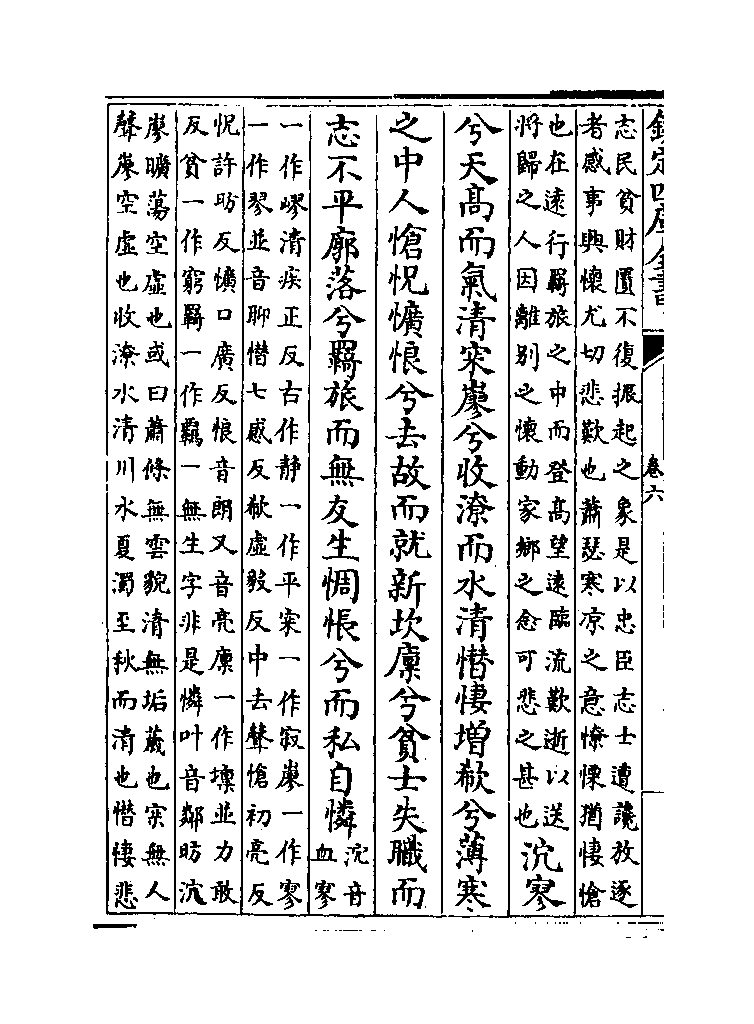 欽定四庫全書
卷六
志民貧財匱不復振起之象是以忠臣志士遭讒放逐
者感事興懷尤切悲歎也蕭瑟寒凉之意憭慄猶悽愴
也在遠行羇旅之中而登高望遠臨流歎逝以送
將歸之人因離别之懷動家鄉之念可悲之甚也
泬寥
兮天高而氣清宋廖兮收潦而水清憯悽増欷兮薄寒
之中人愴怳懭悢兮去故而就新坎廩兮貧士失職而
志不平廓落兮羇旅而無友生惆悵兮而私自憐
泬音
血寥
一作嵺清疾正反古作静一作平寀一作寂廖一作寥
一作並音聊憯七感反欷虚毅反中去聲愴初亮反
怳許昉反懭口廣反悢音朗又音亮廩一作壈並力敢
反貧一作窮羇一作羈一無生字非是憐叶音鄰昉泬
廖曠蕩空虛也或曰蕭條無雲貌清無垢薉也宋無人
聲廖空虛也收潦水清川水夏濁至秋而清也憯悽悲